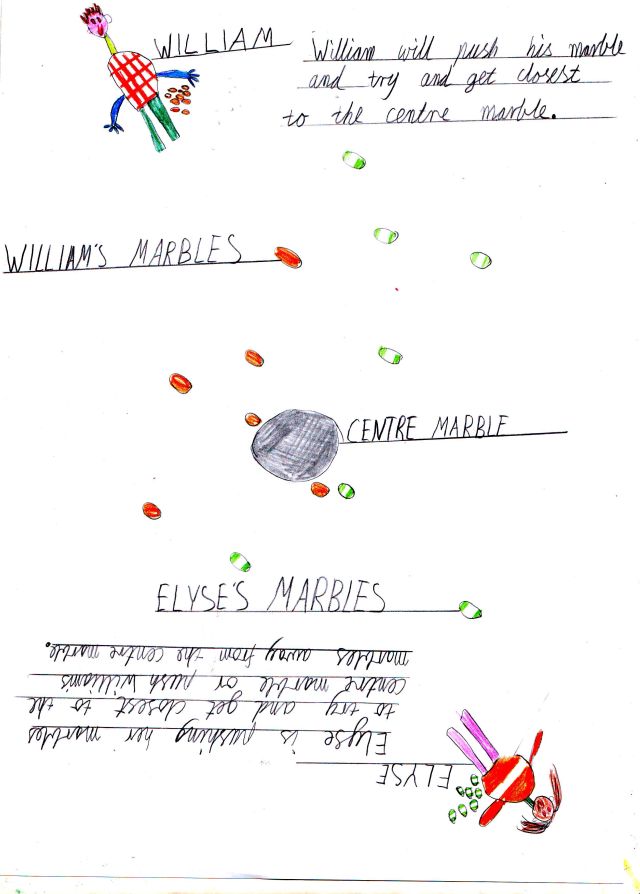 WILLIAM
William will push his marble
and try and get closest
to the centre marble.
WILLIAM'S MARBLES
CENTRE MARBLE
ELYSE'S MARBLES
ELYSE
Elyse is pushing her marbles
to try and get closest to the
centre marble or push William's
marbles away from the centre marble.